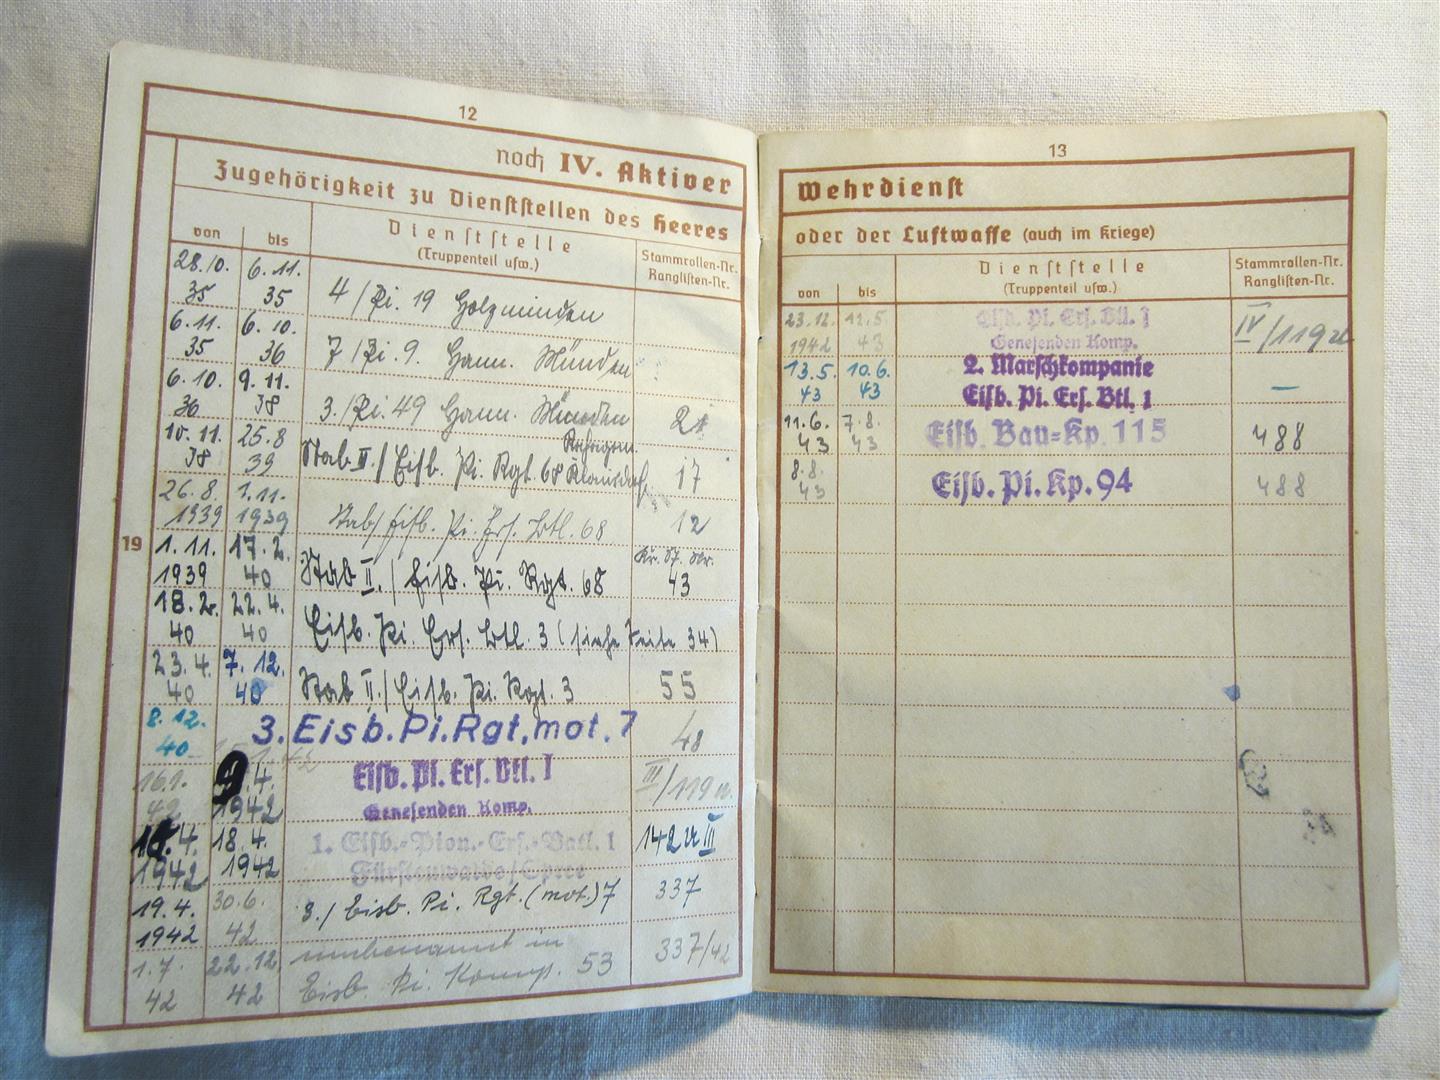 12
noch IV. Aktiver
Zugehörigkeit zu Dienststellen des Heeres
von bis Dienststelle (Truppenteil usw.) Stammrollen-Nr. Ranglisten-Nr.
28.10. 35 6.11. 35 4/Pi. 19 Holzminden
6.11. 35 6.10. 36 7/Pi. 9. Hann. Münden
6.10. 36 9.11. 38 3./Pi. 49 Hann. Münden 21
10.11. 38 25.8 39 Stab II/Eisb. Pi. Rgt. 68 17
26.8. 1939 1.11. 1939 Stab/Eisb. Pi. Ers. Btl. 68 12
19
1.11. 1939 17.2. 40 Stab II./Eisb. Pi. Rgt. 68 43
18.2. 40 22.4. 40 Eisb. Pi. Ers. Btl. 3 (siehe Seite 34)
23.4. 40 7.12. 40 Stab II./Eisb. Pi. Rgt. 3 55
8.12. 40 3. Eisb. Pi. Rgt. mot. 7 48
15.1.42
16.1. 42 .4. 1942 Eisb. Pi. Ers. Btl. I III/119
Genesenden Komp.
.4. 1942 18.4. 1942 1. Eisb.-Pion.-Ers.-Batl. 1 142 III
Fürstenwalde/Spree
19.4. 1942 30.6. 42 3./Eisb. Pi. Rgt. (mot.) 7 337
1.7. 42 22.12. 42 umbenannt in
Eisb. Pi. Komp. 53 337/42
13
Wehrdienst
oder der Luftwaffe (auch im Kriege)
von bis Dienststelle (Truppenteil usw.) Stammrollen-Nr. Ranglisten-Nr.
23.12. 1942 12.5. 43 Eisb. Pi. Ers. Btl. I IV/119
Genesenden Komp.
13.5. 43 10.6. 43 2. Marschkompanie –
Eisb. Pi. Ers. Btl. 1
11.6. 43 7.8. 43 Eisb. Bau=Kp. 115 488
8.8. 43 Eisb. Pi. Kp. 94 488